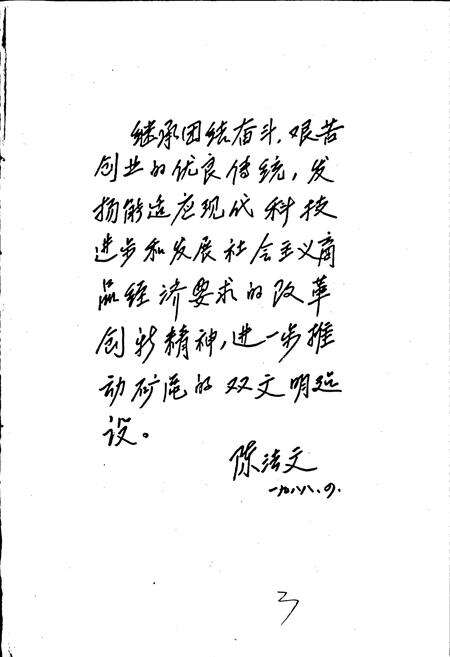 继承团结奋斗、艰苦
创业的优良传统，发
扬能适应现代科技
进步和发展社会主义商
品经济要求的改革
创新精神，进一步推
动矿区的双文明建
设。
陈法文
一九八八.四.
3